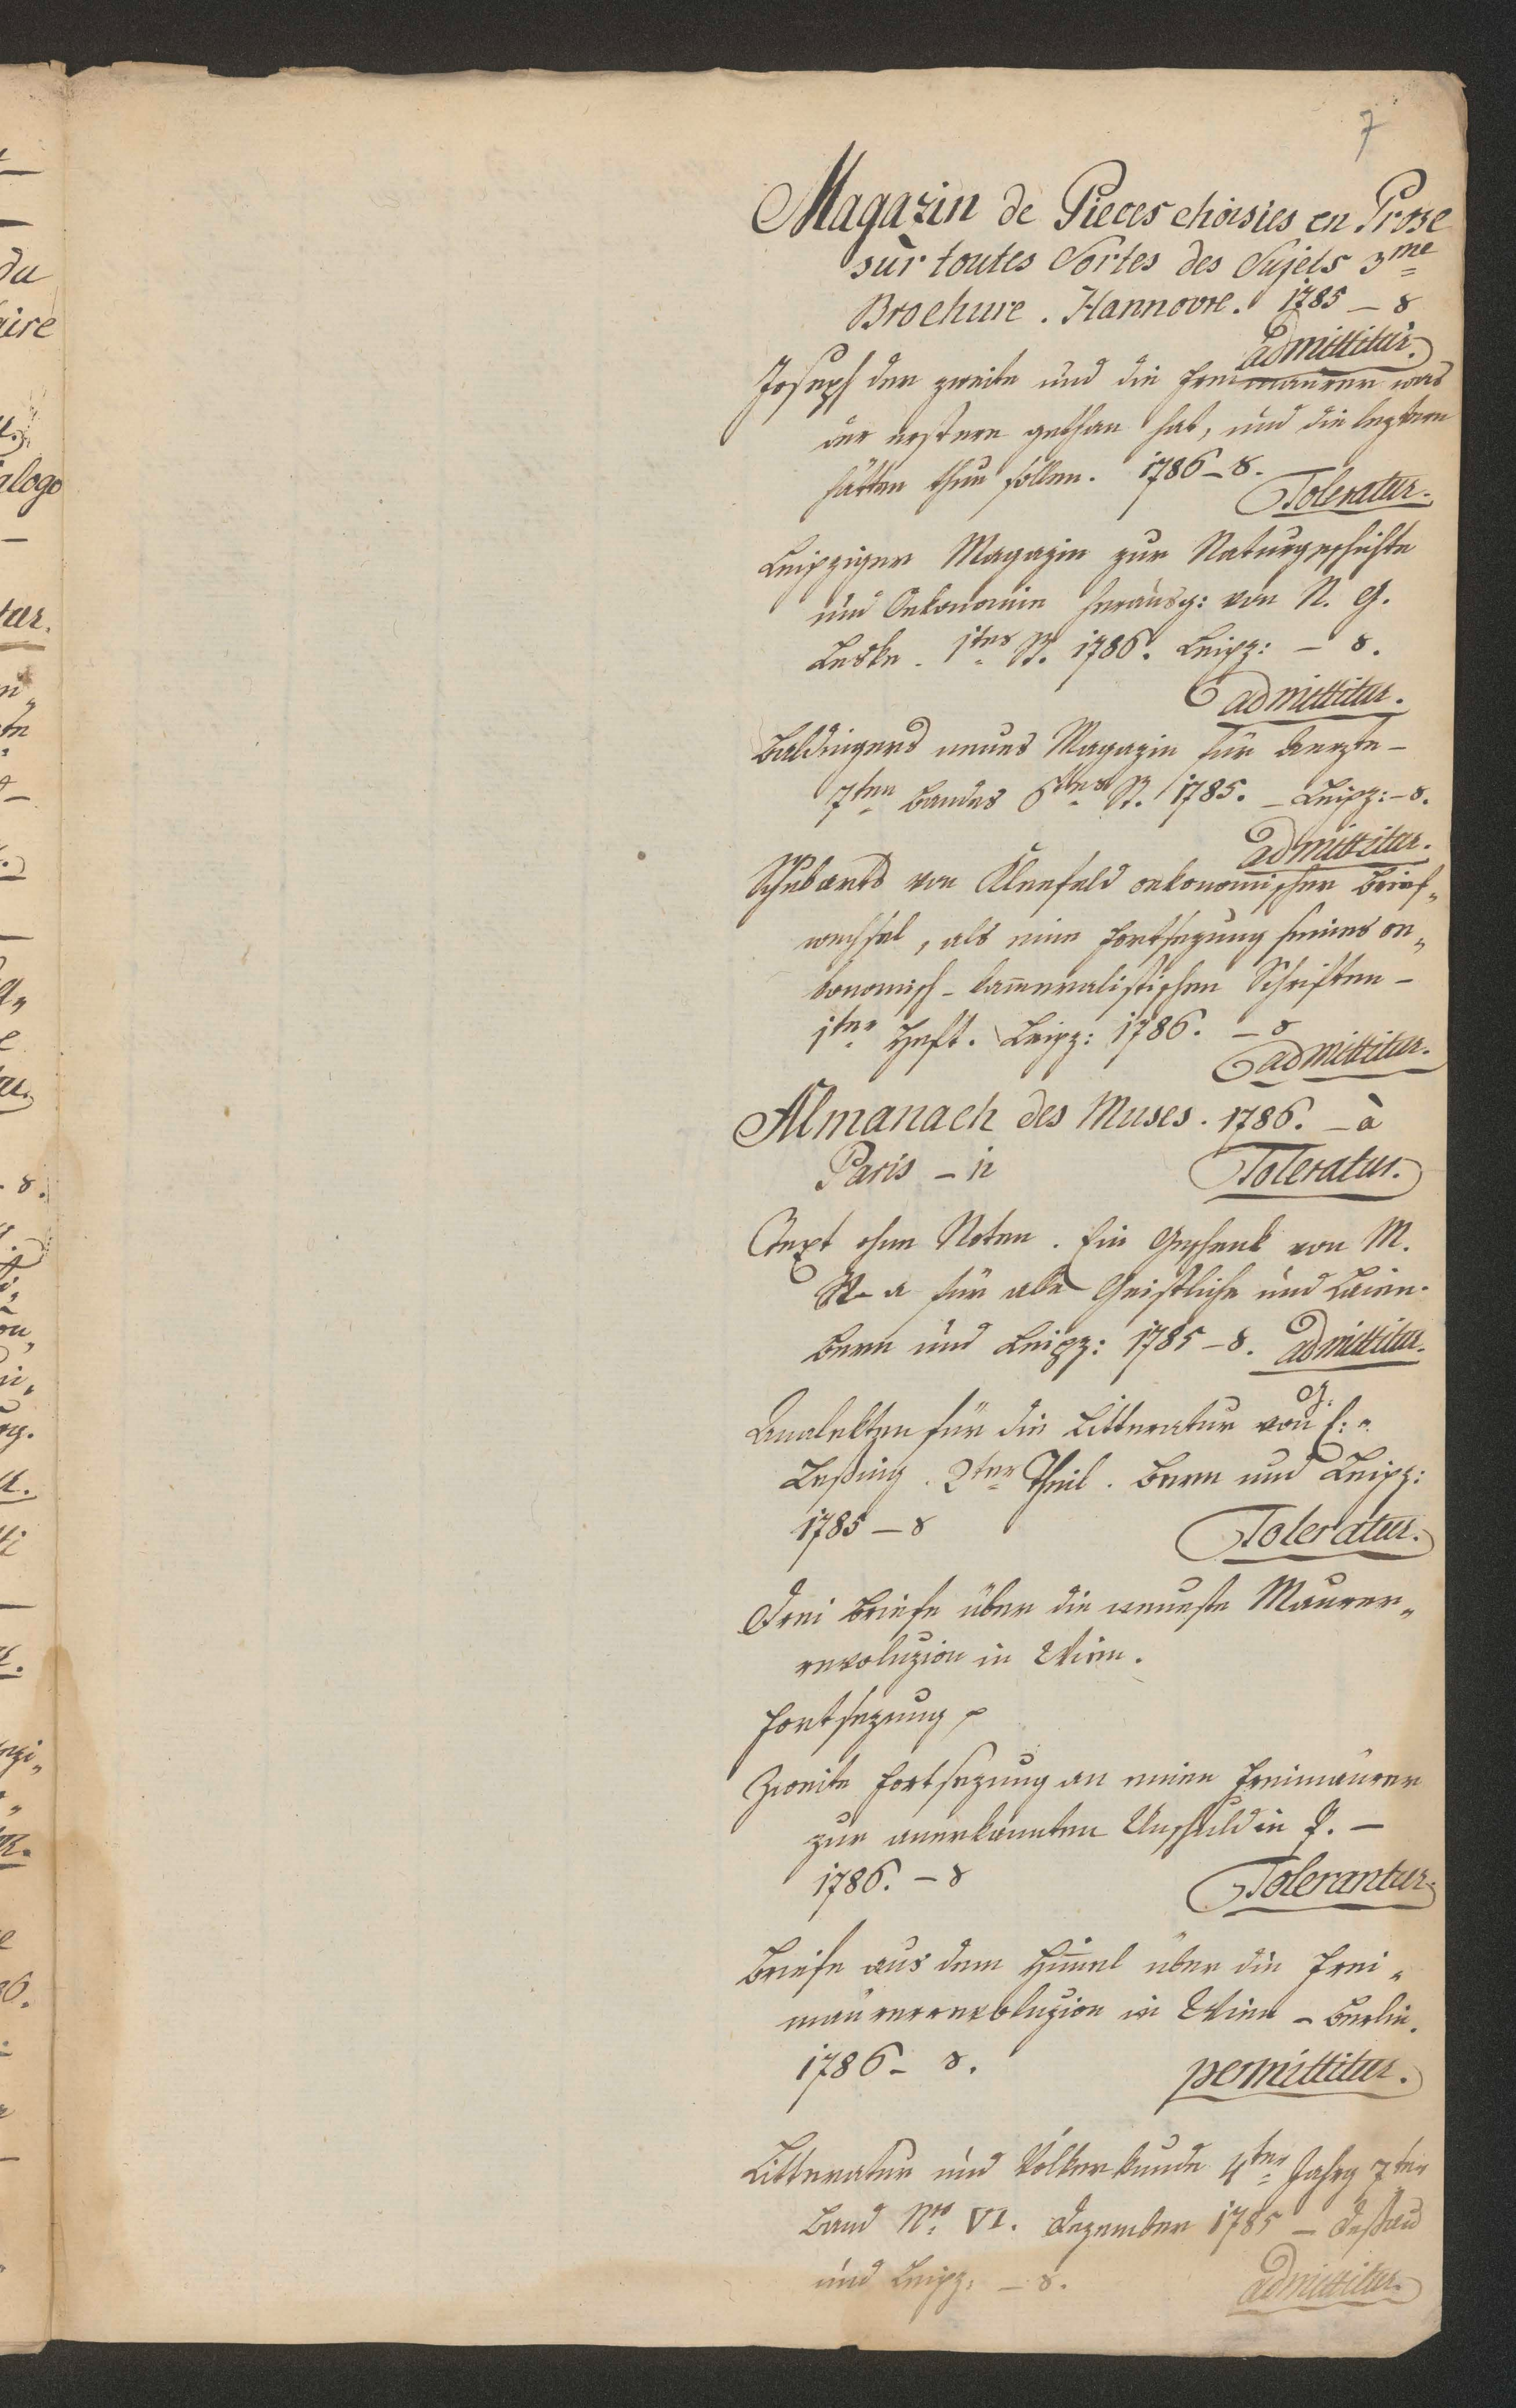 7
Magazin de Pieces choisies en Prose
sùr toutes Sortes des Sujets 3me
Brochure. Hannovre. 1785 – 8
admittitur.
Joseph der zweite und die Freimaurer was
der erstere gethan hat, und die leztern
hätten thun sollen. 1786 – 8.
Toleratur.
Leipziger Magazin zur Naturgeschichte
und Oekonomie herausg: von N. G.
Leske. 1tes St. 1786. Leipz: – 8.
admittitur.
Baldingers neues Magazin für Aerzte –
7ten Bandes 6tes St. 1785. – Leipz: – 8.
admittitur.
Schubarts von Kleefeld oekonomischer Brief„
wechsel, als eine Fortsezung seiner oe„
konomisch – kam̄eralistischen Schriften –
1tes Heft. Leipz: 1786. – 8
admittitur.
Almanach des Muses. 1786. – à
Paris – 12
Toleratur.
Text ohne Noten. Ein Geschenk von M.
für alle Geistliche und Laien.
Bern und Leipz: 1785 – 8. admittitur.
Analekten für die Litteratur von G. E.
Leßing. 2ter Theil. Bern und Leipz:
1785 – 8
Toleratur.
Drei Briefe über die neueste Maurer„
revoluzion in Wien.
Fortsezung
Zweite Fortsezung an meine Freimaurer
zur anerkannten Unschuld in P. –
1786. – 8
Tolerantur.
Briefe aus dem Him̄el über die Frei„
maurerrevoluzion in Wien – Berlin.
1786 – 8.
permittitur.
Litteratur und Völkerkunde 4ter Jahrg 7ter
Band Nro VI. Dezember 1785 – Deßau
und Leipz: – 8.
admittitur.